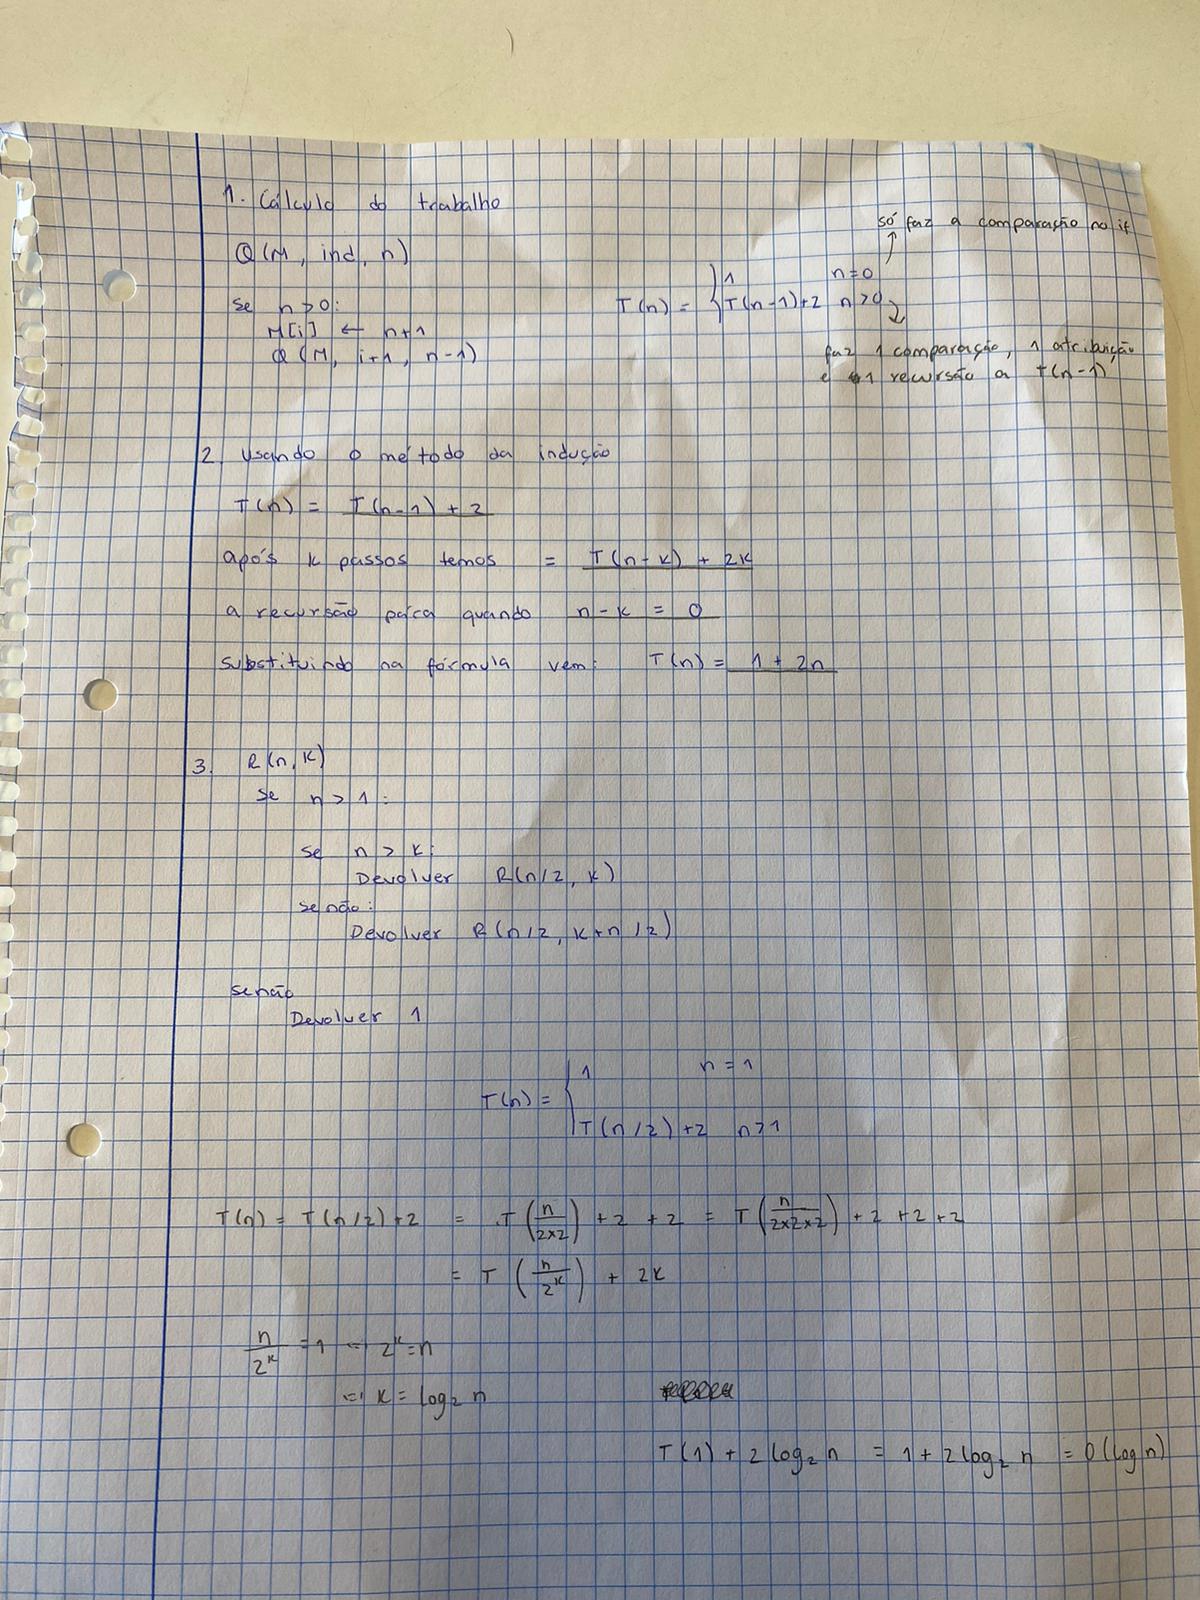 1. Cálculo do trabalho
Q(M, ind, n)
se n>0:
M[i] ← n+1
Q(M, i+1, n-1)
só faz a comparação no if
T(n) = { 1 n=0
T(n-1)+2 n>0
faz 1 comparação, 1 atribuição
e 1 recursão a T(n-1)
2. Usando o método da indução
T(n) = T(n-1) + 2
após k passos temos = T(n-k) + 2k
a recursão para quando n-k = 0
substituindo na fórmula vem: T(n) = 1 + 2n
3. R(n,k)
se n > 1:
se n > k:
Devolver R(n/2, k)
senão:
Devolver R(n/2, k+n/2)
senão
Devolver 1
T(n) = { 1 n=1
T(n/2)+2 n>1
T(n) = T(n/2)+2 = T(n/2×2) +2 +2 = T(n/2×2×2) +2 +2 +2
= T(n/2^k) + 2k
n/2^k = 1 <=> 2^k=n
<=> k = log₂ n
T(1) + 2 log₂ n = 1 + 2 log₂ n = O(log n)